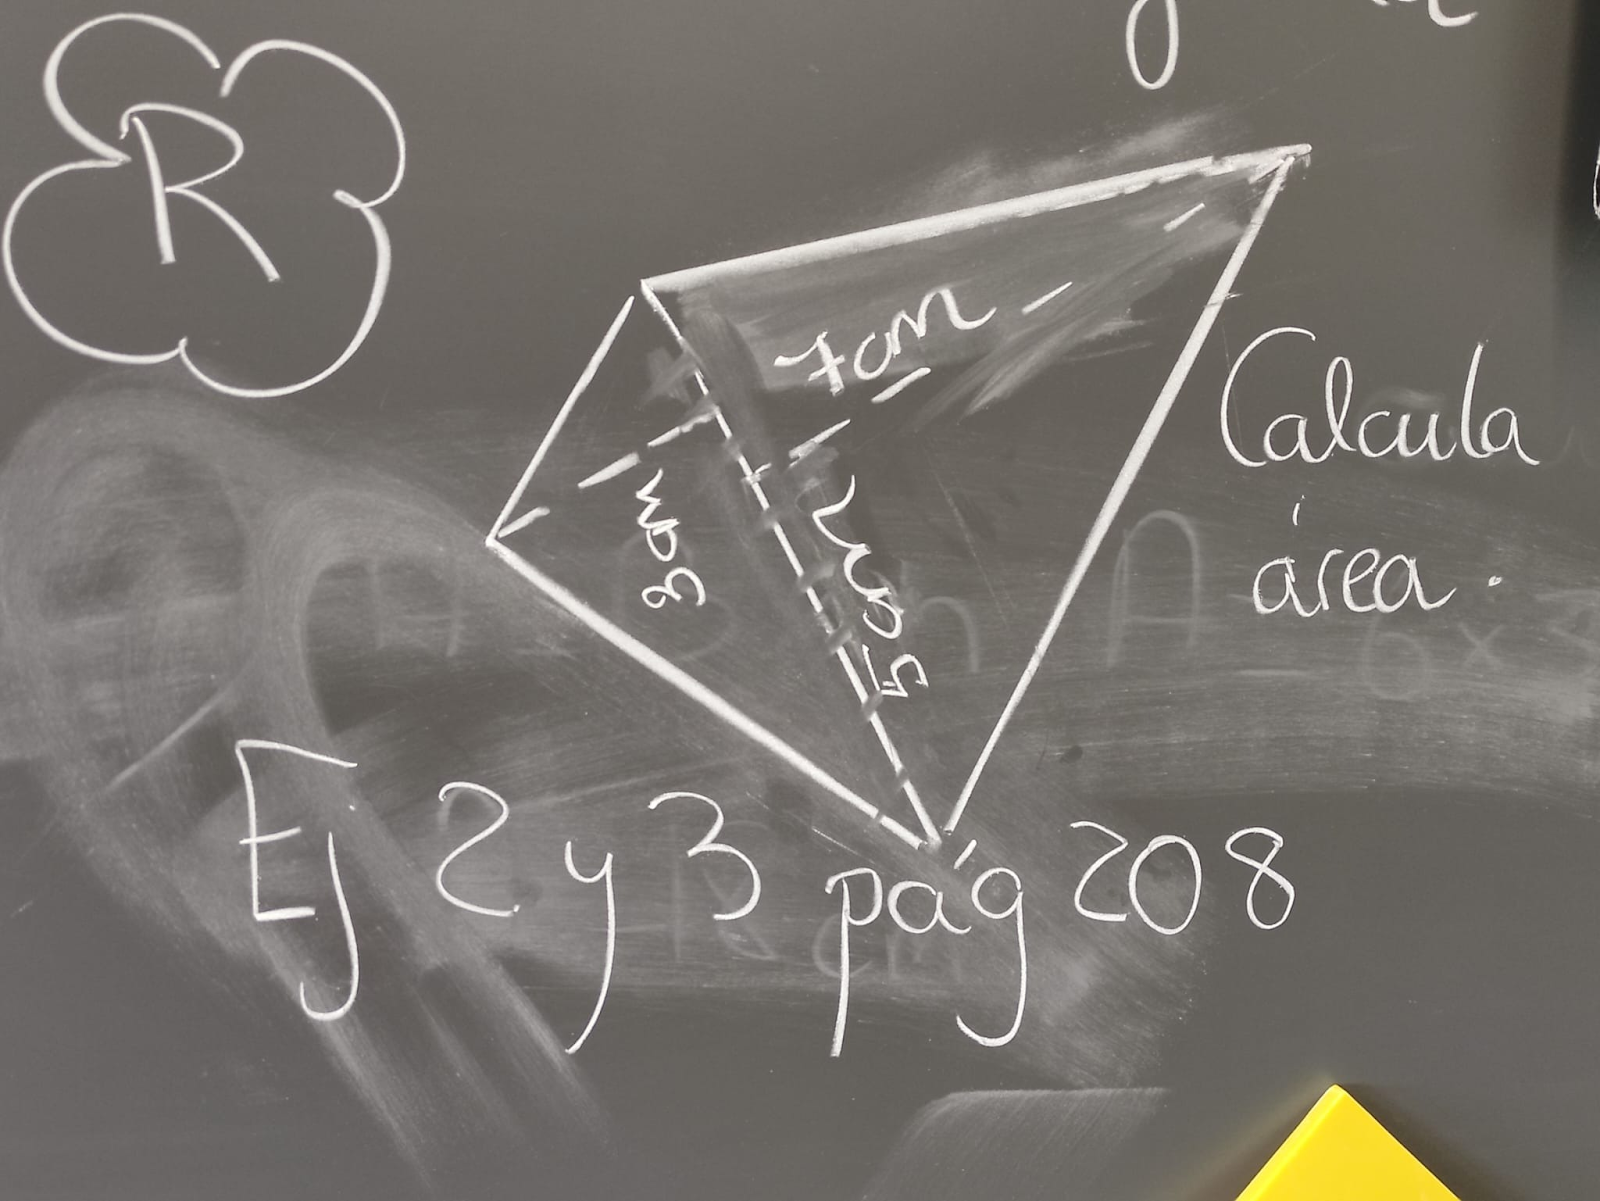 R
7cm
3cm
5cm
Calcula
área.
Ej 2 y 3 pág 208